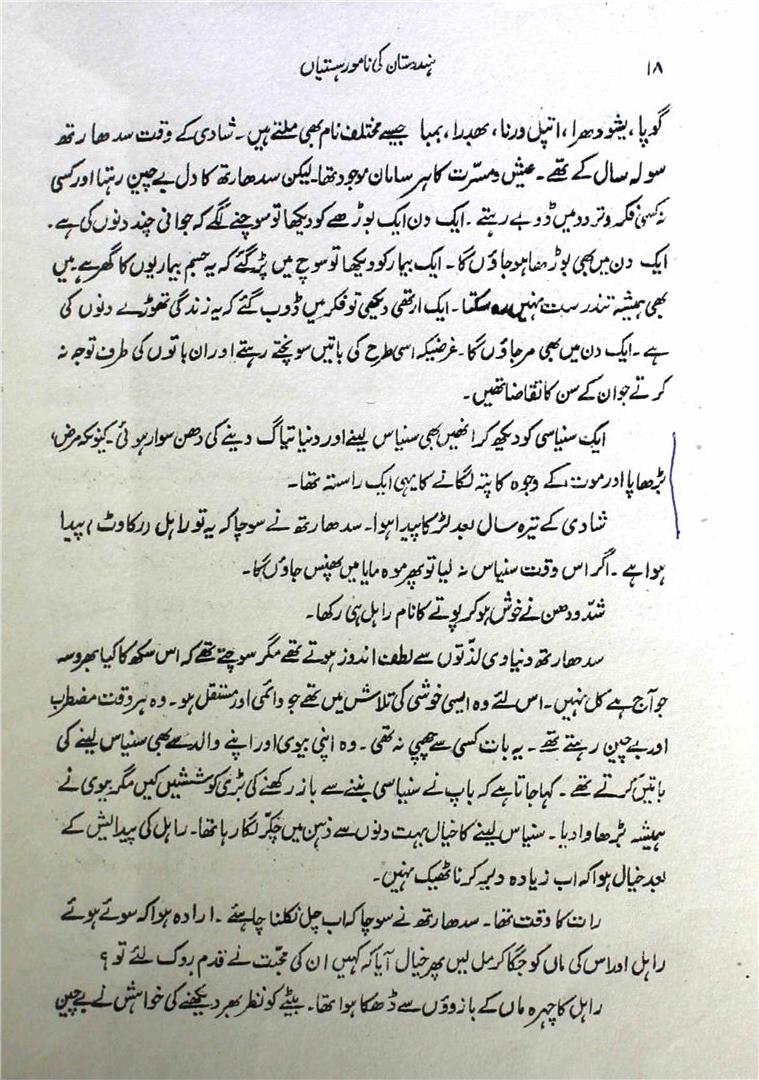 ۱۸
ہندستان کی نامور ہستیاں
گوپا، یشودھرا، اتپل ورنا، بھدرا، بمبا جیسے مختلف نام بھی ملتے ہیں۔ شادی کے وقت سدھارتھ
سولہ سال کے تھے۔ عیش و مسرّت کا ہر سامان موجود تھا۔ لیکن سدھارتھ کا دل بے چین رہتا اور کسی
نہ کسی فکر و تردد میں ڈوبے رہتے۔ ایک دن ایک بوڑھے کو دیکھا تو سوچنے لگے کہ جوانی چند دنوں کی ہے۔
ایک دن میں بھی بوڑھا ہو جاؤں گا۔ ایک بیمار کو دیکھا تو سوچ میں پڑ گئے کہ یہ جسم بیماریوں کا گھر ہے میں
بھی ہمیشہ تندرست نہیں رہ سکتا۔ ایک ارتھی دیکھی تو فکر میں ڈوب گئے کہ یہ زندگی تھوڑے دنوں کی
ہے۔ ایک دن میں بھی مر جاؤں گا۔ غرضیکہ اسی طرح کی باتیں سوچتے رہتے اور ان باتوں کی طرف توجہ نہ
کرتے جو ان کے سن کا تقاضا تھیں۔
ایک سنیاسی کو دیکھ کر انھیں بھی سنیاس لینے اور دنیا تیاگ دینے کی دھن سوار ہوئی۔ کیونکہ مرض،
بڑھاپا اور موت کے وجوہ کا پتہ لگانے کا یہی ایک راستہ تھا۔
شادی کے تیرہ سال بعد لڑکا پیدا ہوا۔ سدھارتھ نے سوچا کہ یہ تو راہل (رکاوٹ) پیدا
ہوا ہے۔ اگر اس وقت سنیاس نہ لیا تو پھر موہ مایا میں پھنس جاؤں گا۔
شدّودھن نے خوش ہو کر پوتے کا نام راہل ہی رکھا۔
سدھارتھ دنیاوی لذّتوں سے لطف اندوز ہوتے تھے مگر سوچتے تھے کہ اس سکھ کا کیا بھروسہ
جو آج ہے کل نہیں۔ اس لئے وہ ایسی خوشی کی تلاش میں تھے جو دائمی اور مستقل ہو۔ وہ ہر وقت مضطرب
اور بے چین رہتے تھے۔ یہ بات کسی سے چھپی نہ تھی۔ وہ اپنی بیوی اور اپنے والد سے بھی سنیاس لینے کی
باتیں کرتے تھے۔ کہا جاتا ہے کہ باپ نے سنیاسی بننے سے باز رکھنے کی بڑی کوششیں کیں مگر بیوی نے
ہمیشہ بڑھاوا دیا۔ سنیاس لینے کا خیال بہت دنوں سے ذہن میں چکّر لگا رہا تھا۔ راہل کی پیدائش کے
بعد خیال ہوا کہ اب زیادہ دیر کرنا ٹھیک نہیں۔
رات کا وقت تھا۔ سدھارتھ نے سوچا کہ اب چل نکلنا چاہئے۔ ارادہ ہوا کہ سوئے ہوئے
راہل اور اس کی ماں کو جگا کر مل لیں پھر خیال آیا کہ کہیں ان کی محبّت نے قدم روک لئے تو؟
راہل کا چہرہ ماں کے بازوؤں سے ڈھکا ہوا تھا۔ بیٹے کو نظر بھر دیکھنے کی خواہش نے بے چین